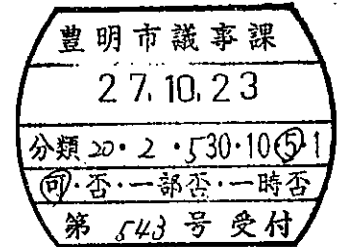 豊明市議事課
27.10.23
分類 20・2・530・10・5・1
可・否・一部否・一時否
第 543 号 受付